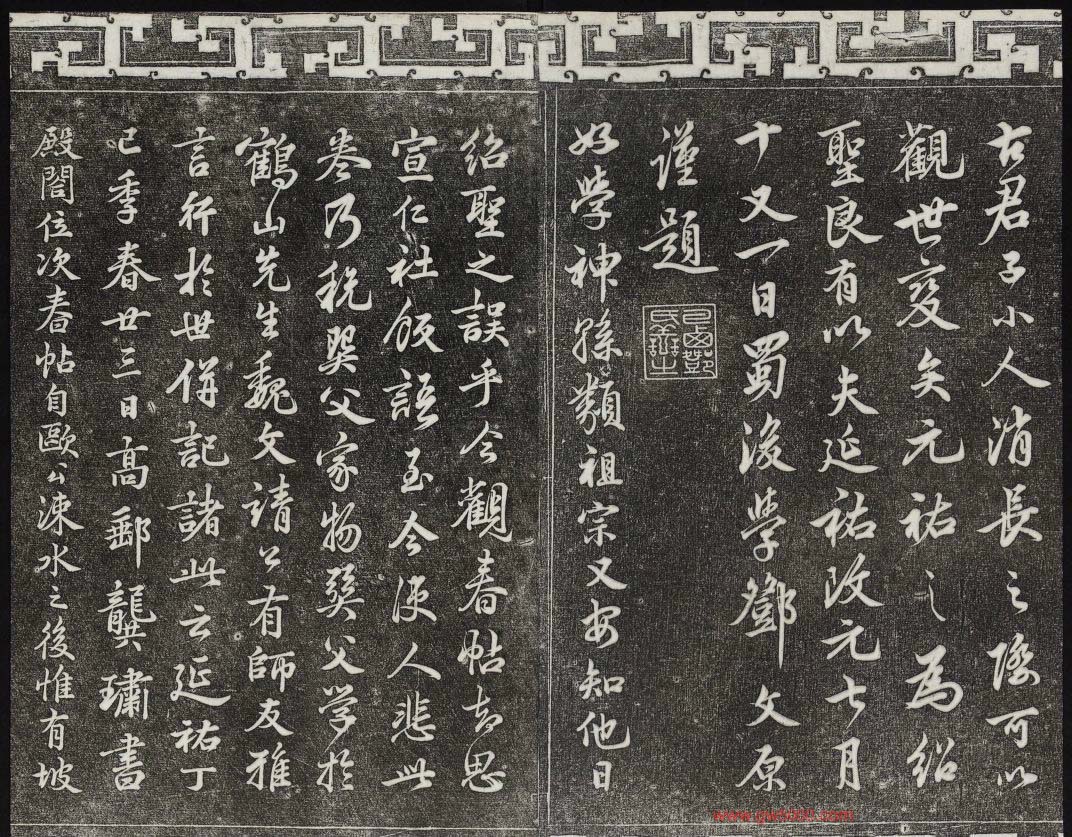 古君子小人消長之際可以
觀世变矣元祐之為紹
聖良有以夫延祐改元七月
十又一日蜀後學鄧文原
謹題
好學神孫類祖宗又安知他日
紹聖之誤乎今觀春帖知思
宣仁社飯語至今使人悲此
卷乃税巽父家物巽父学於
鶴山先生魏文靖公有師友雅
言行於世併記諸此云延祐丁
巳季春廿三日高郵龔璛書
殿閤位次春帖自歐公涑水之後惟有坡